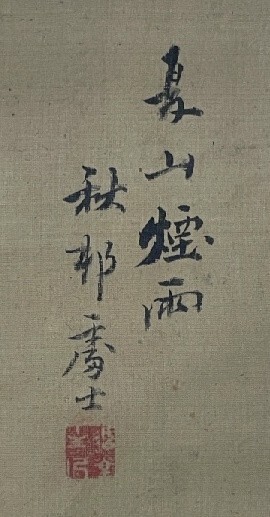 夏山煙雨
秋邨處士